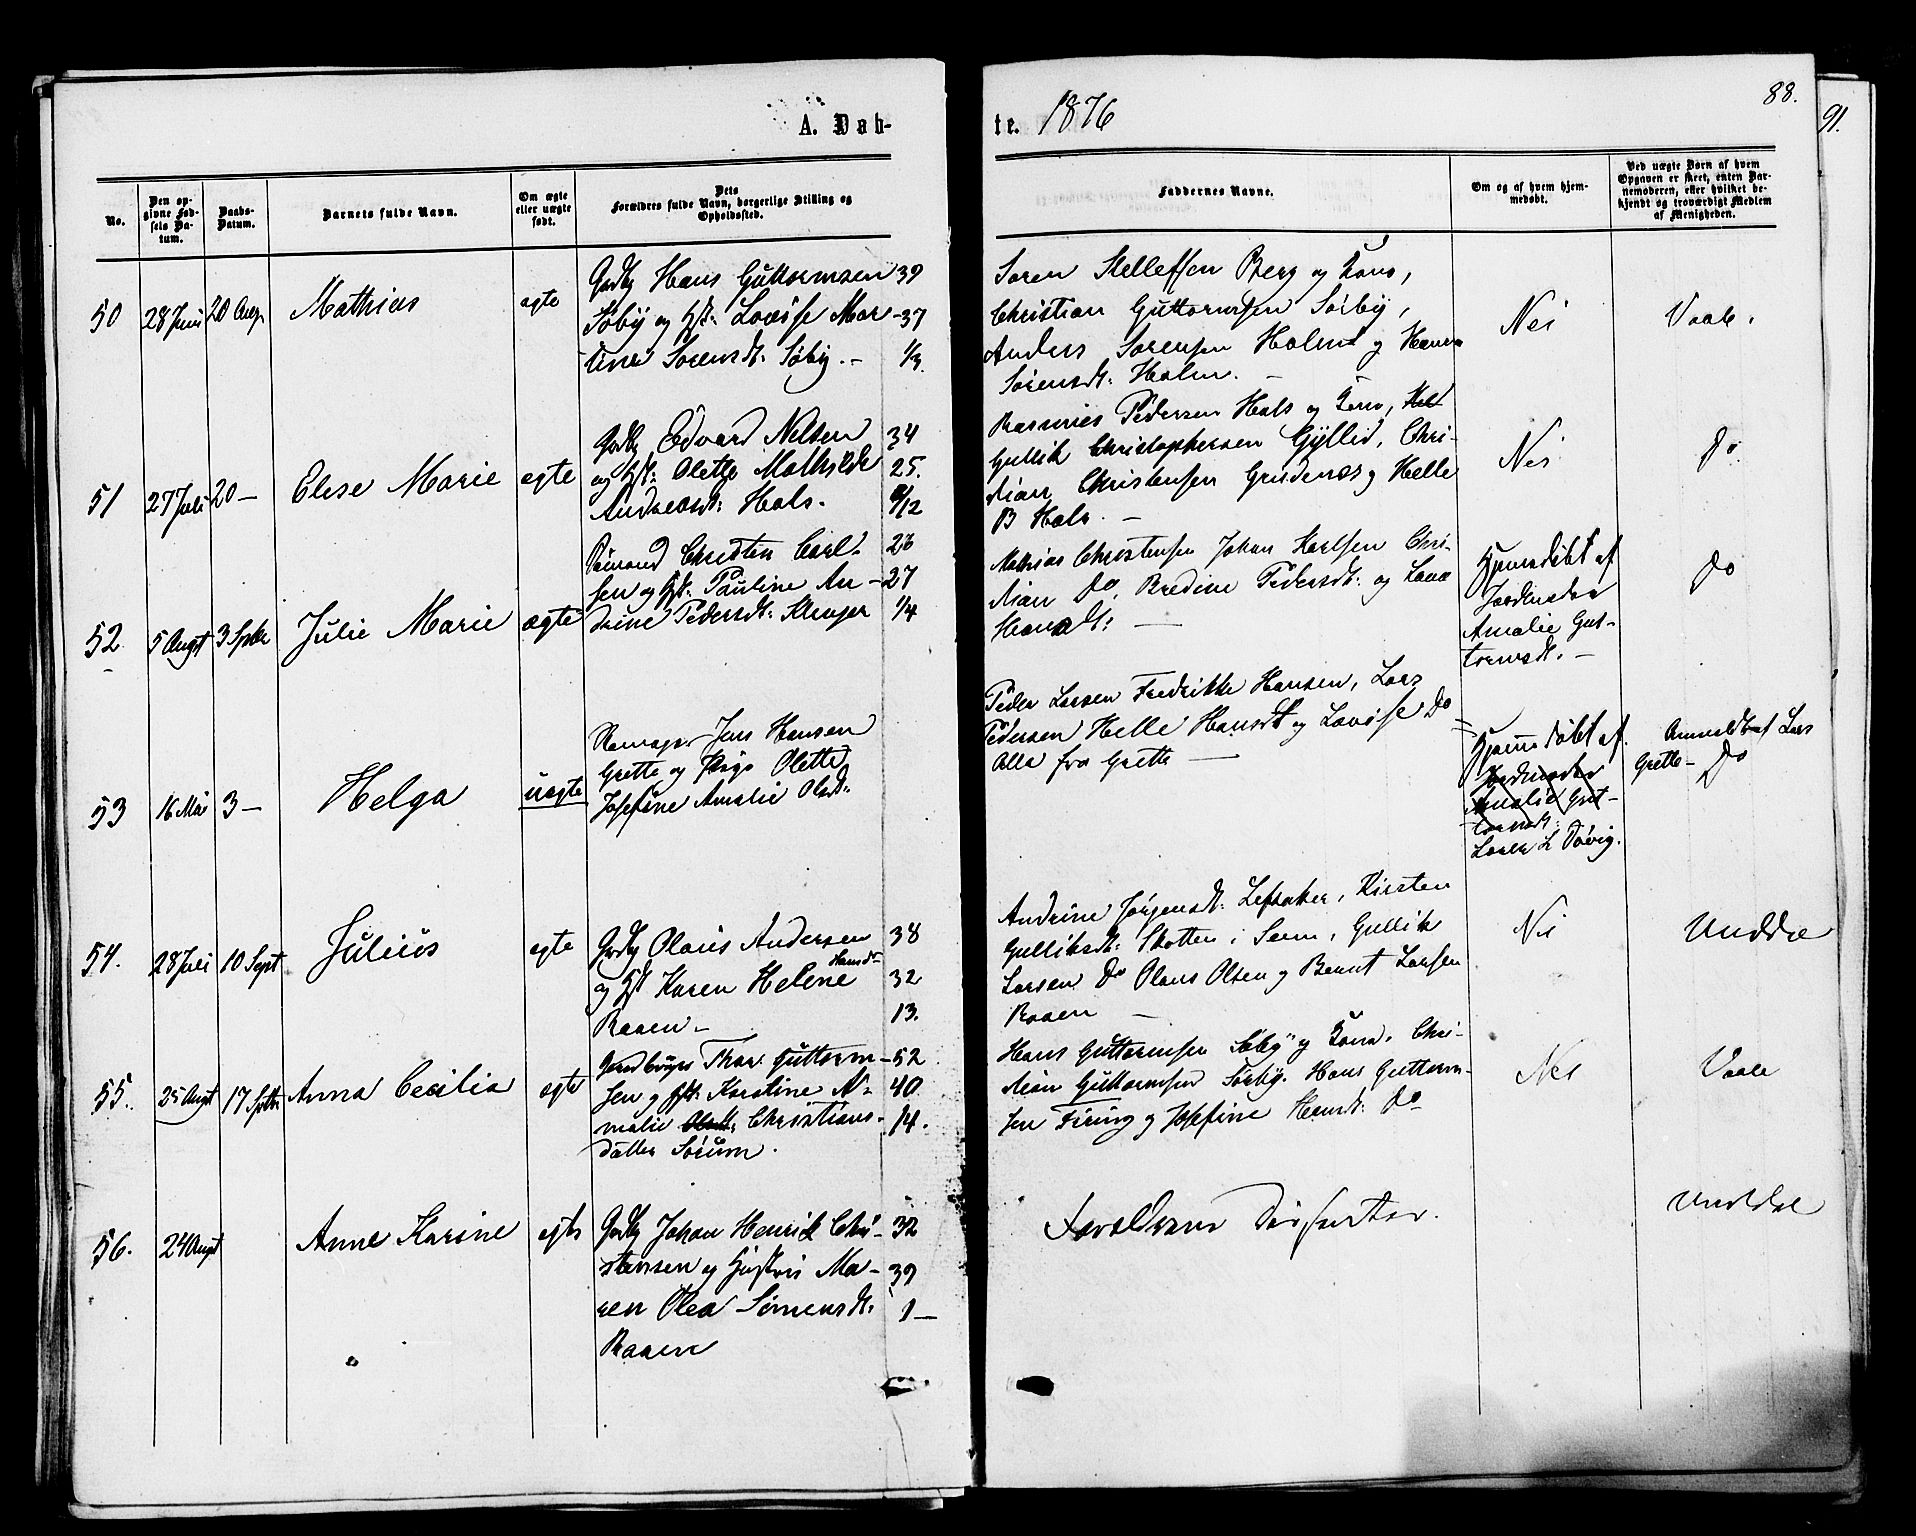 A. Døb-
te. 1876
88.
91.
No.
Den op-
givne Fød-
sels Da-
tum.
Daabs-
Datum.
Barnets fulde Navn.
Om ægte
eller uægte
født.
Dets
Forældres fulde Navn, borgerlige Stilling og
Opholdssted.
Faddernes Navne.
Om og af hvem hjem-
medøbt.
Ved uægte Børn af hvem
Opgaven er skeet, enten Bar-
nemoderen, eller hvilket be-
kjendt og troværdigt Medlem
af Menigheden.
50
28 Juni
20 Aug.
Mathias
ægte
Grdb Hans Guttormsen
Søby og Hst: Lovise Mar-
tine Sorensdt: Søby. -
39
37
1/3.
Soren Stellefsen Berg og Kone,
Christian Guttormsen Sørby,
Anders Sorensen Holm og Hanna
Sørensdt: Holm. -
Nei
Vaale.
51
27 Juli
20 -
Elise Marie
ægte
Grdb Edvard Nelsen
og Hst: Olette Mathilde
Andreasdt: Hals.
34
25.
9/12
Rasmus Pedersen Hals og Kone,
Gullik Christophersen Gyllid, Chri-
stian Christensen Grudenæs og Helle
B Hals. -
Nei
Do
52
5 Augst
3 Septbr
Julie Marie
ægte
Christen Carl-
sen og Hst: Pauline An-
drine Pedersdt:
26
27
1/4
Mathias Christensen Johan Karlsen Chri-
stian Do, Bredine Pedersdt: og Lava
Hansdt: -
Hjemmedøbt af
Jordemoder
Amalie Gut-
tormsdt. -
Do
53
16 Mai
3 -
Helga
uægte
Jens Hansen
Grette og Pige Olette
Josefine Amalie Olsdt:
Peder Larsen Fredrikke Hansen, Lars
Pedersen Helle Hansdt og Lovise Do
Alle fra Grette -
Hjemmedøbt af
Jordemoder
Amalie Gut-
tormsdt:
L Døvig.
Anmeldt af Lars
Grette - Do
54.
28 Juli
10 Sept
Julius
ægte
Grdb Olaus Andersen
Hansdt
og Hst Karen Helene
Raaen -
38
32
13.
Andrine Jørgensdt: Lefsaker, Kirsten
Gulliksdt: Skotten i Sem, Gullik
Larsen Do Olaus Olsen og Bernt Larsen
Raaen -
Nei
Unddal
55.
25 Augst
17 Septbr
Anna Cecilia
ægte
Gaardbruger Thor Guttorm-
sen og Hst: Karstine A-
malie Olsdt: Christians-
datter Sørum.
52
40
14.
Hans Guttormsen Søby og Kone. Chri-
stian Guttormsen Sørby. Hans Guttorm-
sen Firing og Josefine Hansdt: Do
Nei
Vaale
56.
24 Augst
Anne Karine
ægte
Grdb Johan Henrik Chri-
stensen og Hustru Ma-
ren Olea Simensdt:
Raaen
32
39
1 -
Forældrene Dissenter.
Unddal